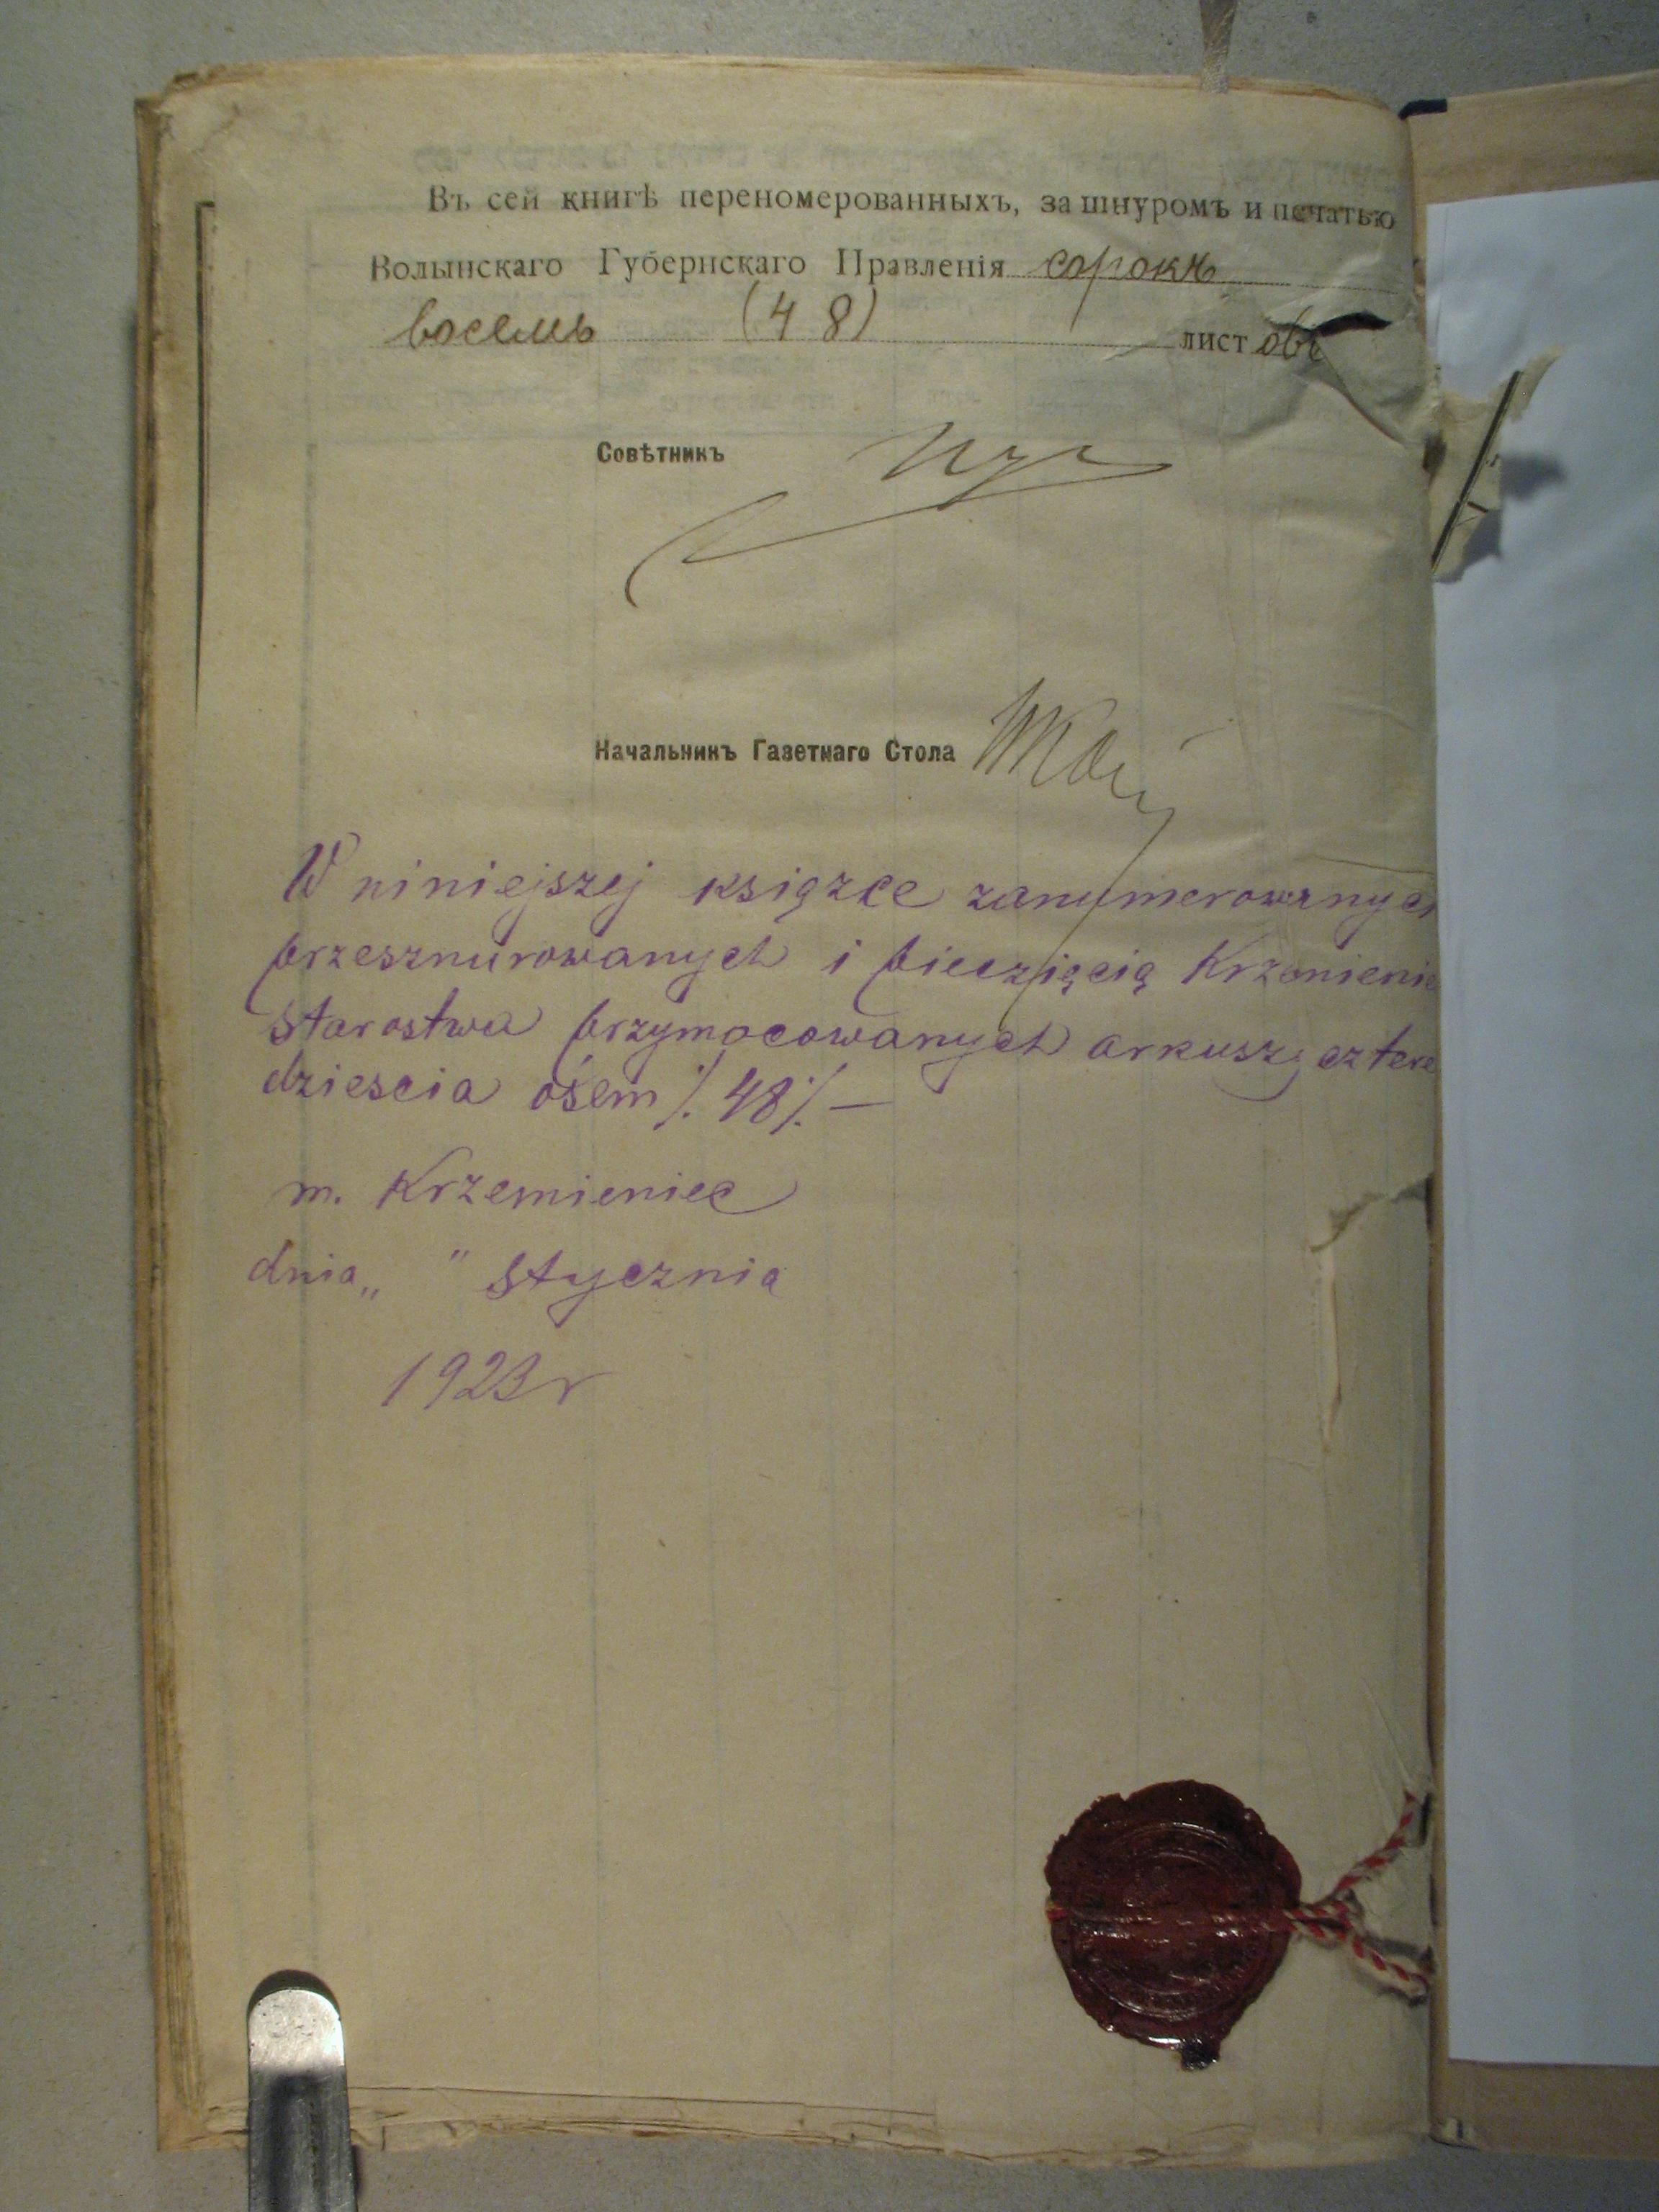 Въ сей книгѣ переномерованныхъ, за шнуромъ и печатью
Волынскаго Губернскаго Правленія сорокъ
восемь (48) листовъ
Совѣтникъ
Начальникъ Газетнаго Стола
W niniejszej książce zanumerowanych
przesznurowanych i pieczięcią Krzemienie
starostwa przymocowanych arkuszy cztere
dziescia ośem /. 48 /. —
m. Krzemieniec
dnia „ " stycznia
1923 r